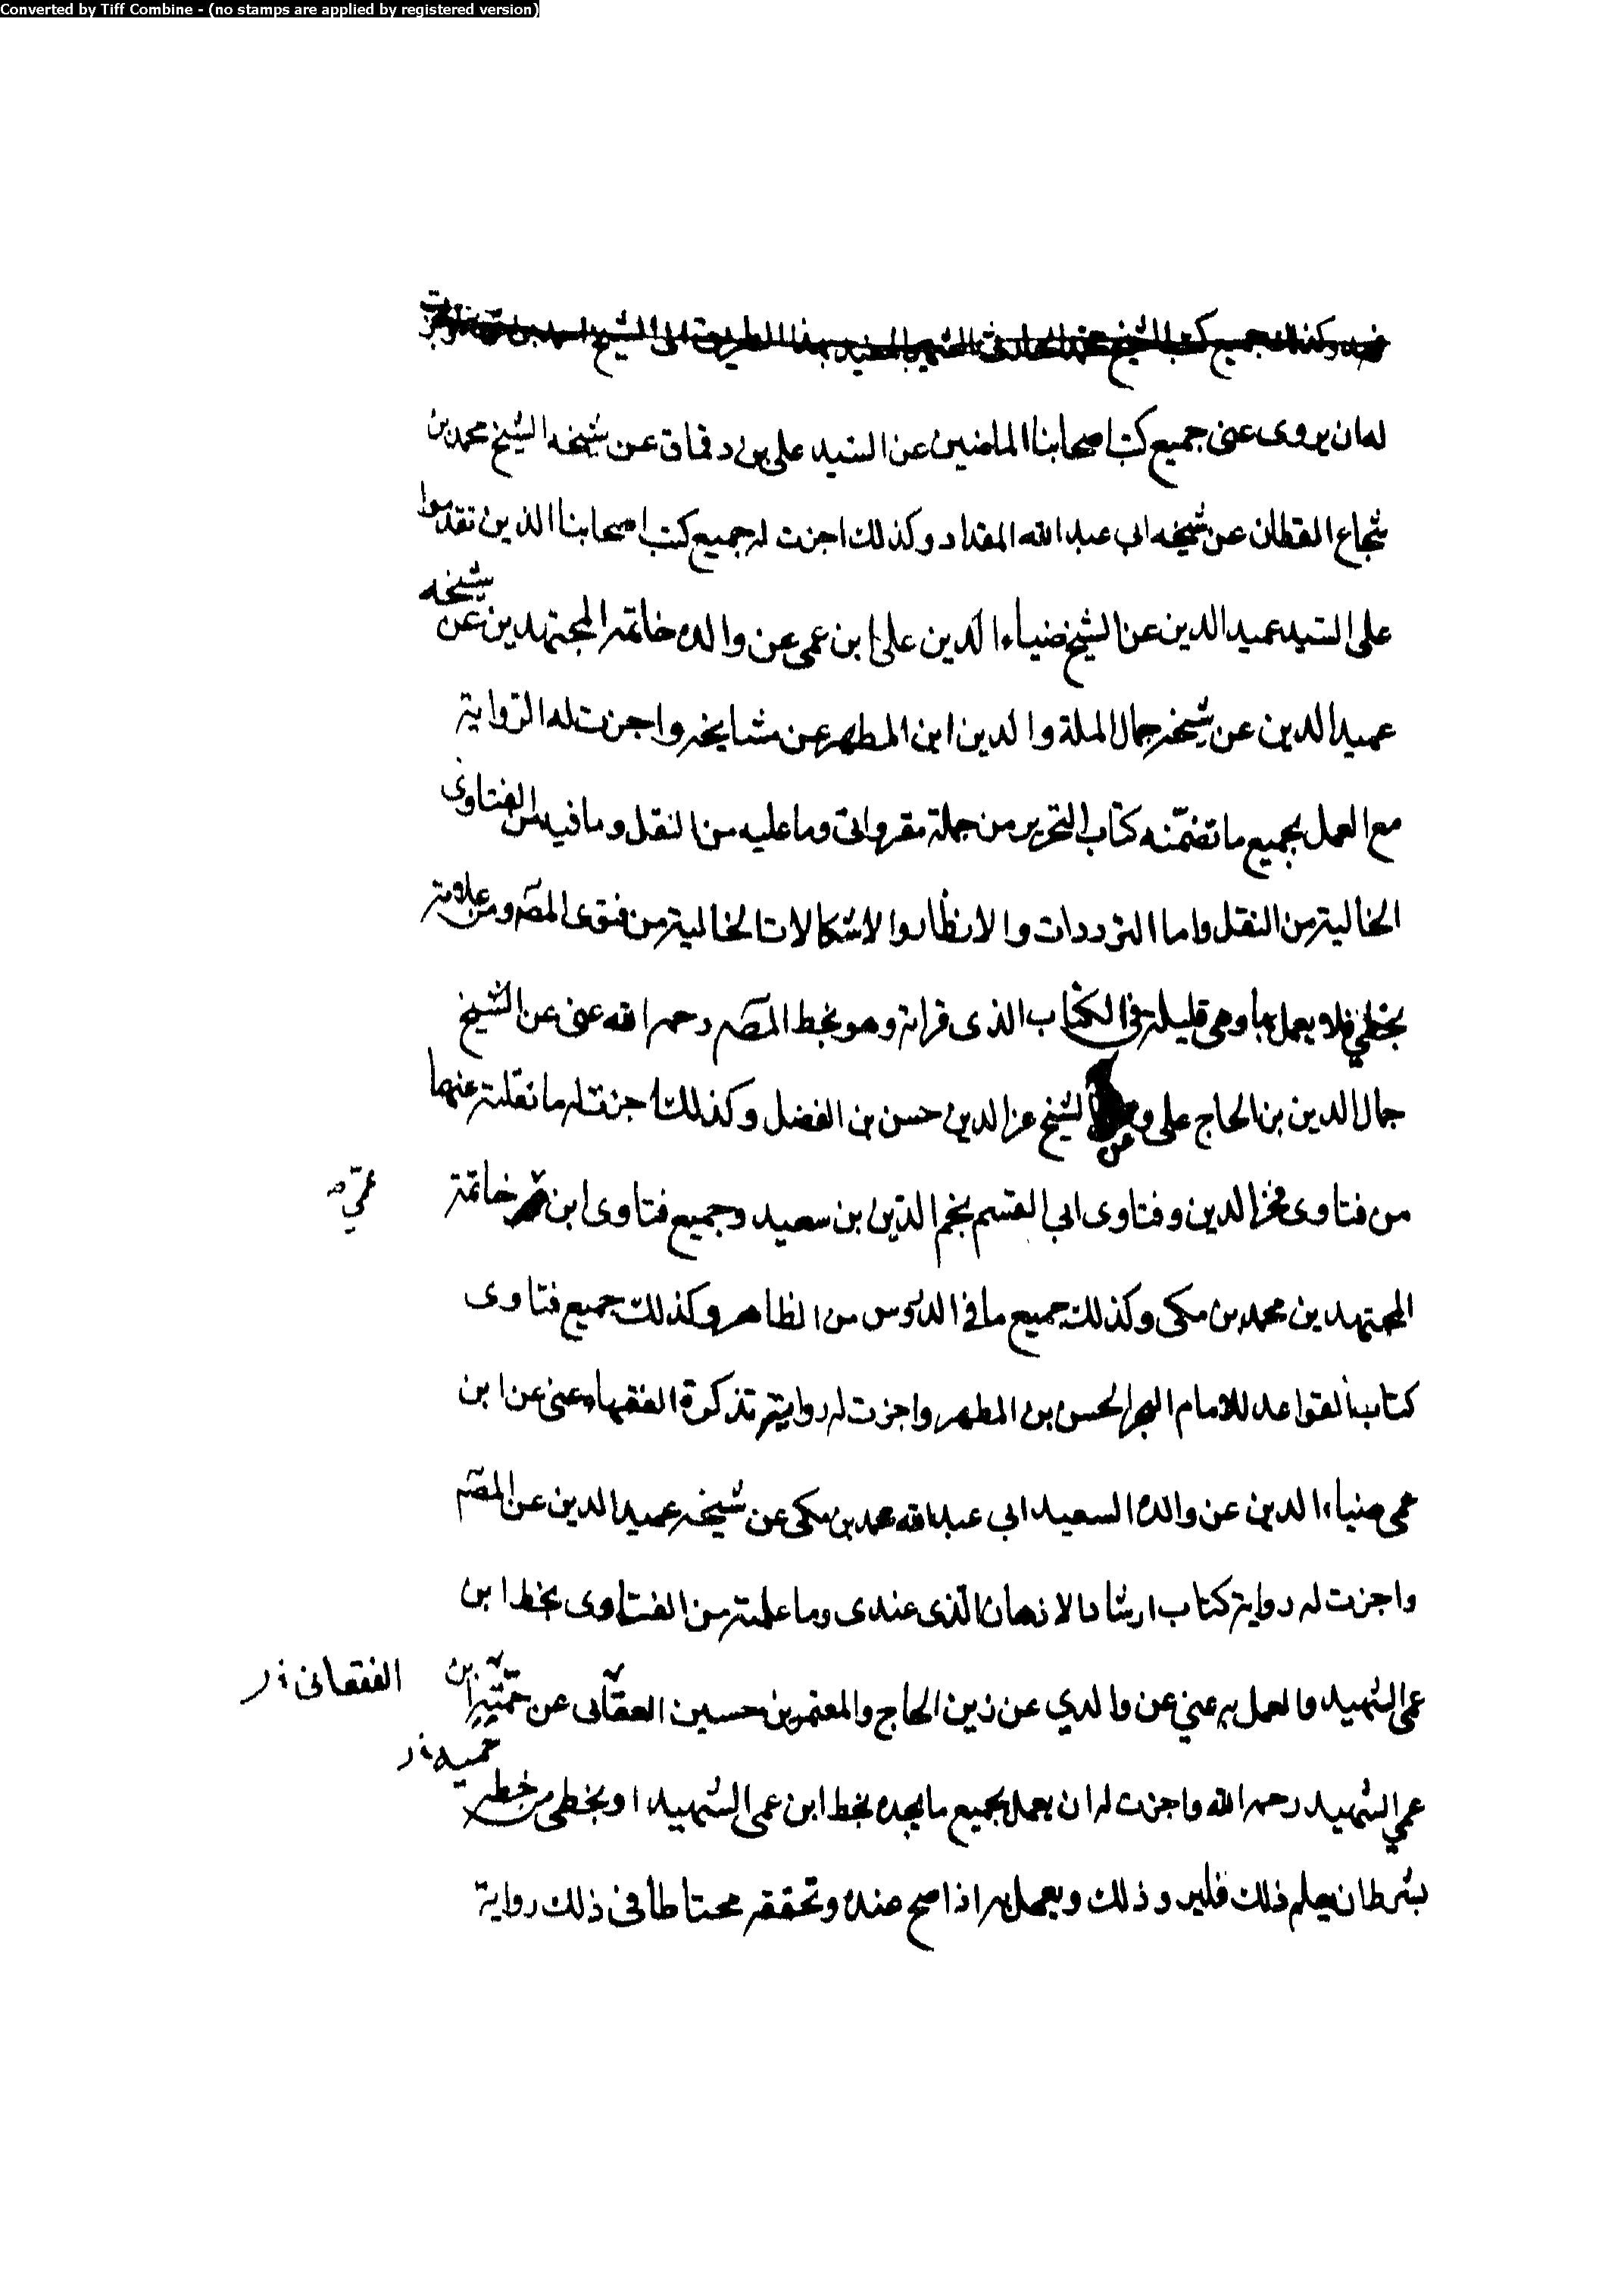 Converted by Tiff Combine - (no stamps are applied by registered version)
وكذلك جميع كتب الشيخ بهذا الطريق الى الشيخ
له ان يروى عنى جميع كتب اصحابنا الماضين عن السيد على بن دقماق عن شيخه الشيخ محمد بن
شجاع القطان عن شيخه ابى عبد الله المقداد وكذلك اجزت له جميع كتب اصحابنا الذين تقدموا
على السيد عميد الدين عن الشيخ ضياء الدين على ابن عمى عن والده خاتمة المجتهدين عن شيخه
عميد الدين عن شيخه جمال الملة والدين ابن المطهر عن مشايخه واجزت له الرواية
مع العمل بجميع ما تضمّنه كتاب التحرير من جملة مقرواتى وما عليه من النقل وما فيه من الفتاوى
الخالية من النقل واما الترددات والانظار والاشكالات الخالية من فتوى المصه ومن علامته
بخطي فلا يعمل بها وهى قليلة فى الكتاب الذى قراته وهو بخط المصه رحمه الله عنى عن الشيخ
جمال الدين بن الحاج على و عن الشيخ عز الدين حسن بن الفضل وكذلك اجزت له ما نقلته عنهما
من فتاوى فخر الدين وفتاوى ابى القسم نجم الدين بن سعيد وجميع فتاوى ابن خاتمة
عمّي
المجتهدين محمد بن مكى وكذلك جميع ما فى الدروس من الظاهر وكذلك جميع فتاوى
كتاب القواعد للامام البحر الحسن بن المطهر واجزت له رواية تذكرة الفقهاء عنى عن ابن
عمى ضياء الدين عن والده السعيد ابي عبد الله محمد بن مكى عن شيخه عميد الدين عن المصه
واجزت له رواية كتاب ارشاد الاذهان الذى عندى وما علمته من الفتاوى بخط ابن
عمى الشهيد والعمل به عني عن والدي عن زين الحاج والمعتمر بن حسين العقانى عن بن
الفقعانى ر
حميد ر
عمي الشهيد رحمه الله واجزت له ان يعمل بجميع ما يجده بخط ابن عمى الشهيد او بخطى من خطه
بشرط ان يعلم ذلك فليرو ذلك ويعمل به اذا صح عنده وتحققه محتاطا فى ذلك رواية